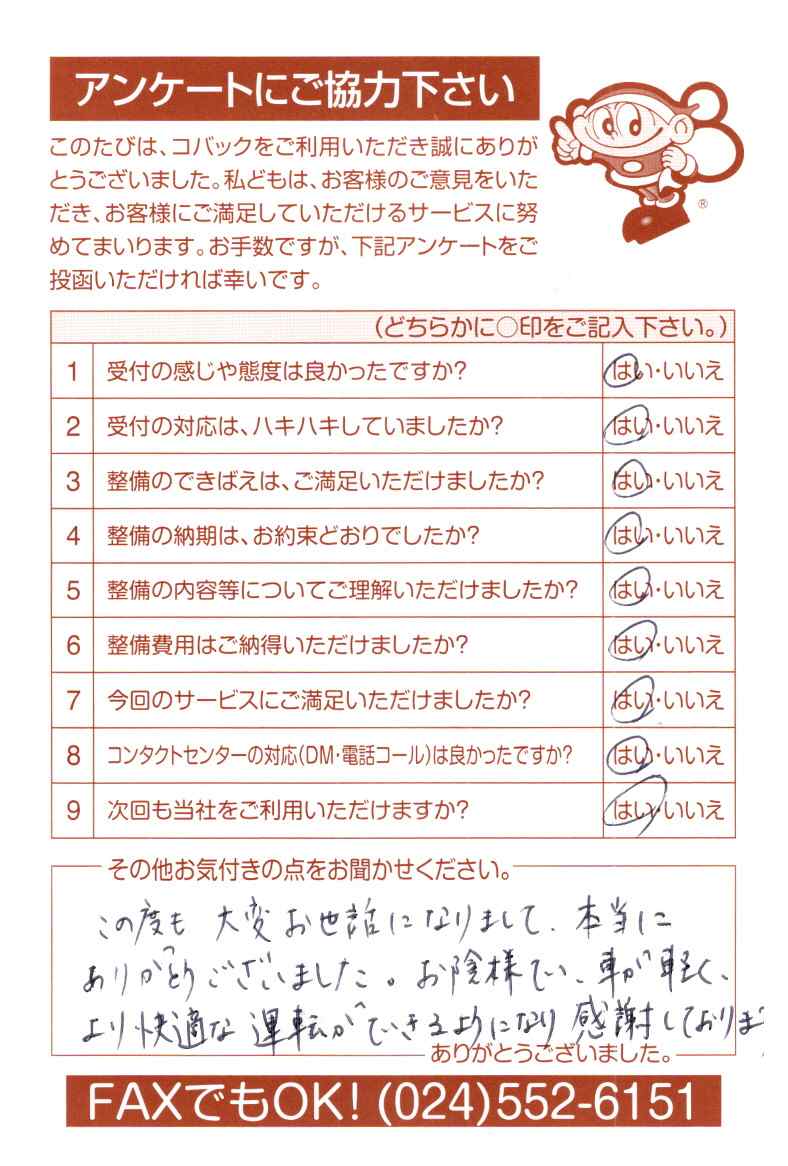 アンケートにご協力下さい
このたびは、コバックをご利用いただき誠にありが
とうございました。私どもは、お客様のご意見をいた
だき、お客様にご満足していただけるサービスに努
めてまいります。お手数ですが、下記アンケートをご
投函いただければ幸いです。
®
(どちらかに○印をご記入下さい。)
1 受付の感じや態度は良かったですか? はい・いいえ
2 受付の対応は、ハキハキしていましたか? はい・いいえ
3 整備のできばえは、ご満足いただけましたか? はい・いいえ
4 整備の納期は、お約束どおりでしたか? はい・いいえ
5 整備の内容等についてご理解いただけましたか? はい・いいえ
6 整備費用はご納得いただけましたか? はい・いいえ
7 今回のサービスにご満足いただけましたか? はい・いいえ
8 コンタクトセンターの対応(DM・電話コール)は良かったですか? はい・いいえ
9 次回も当社をご利用いただけますか? はい・いいえ
その他お気付きの点をお聞かせください。
この度も 大変お世話になりまして、本当に
ありがとうございました。お陰様で、車が軽く、
より快適な運転ができるようになり感謝しておりま
ありがとうございました。
FAXでもOK! (024)552-6151